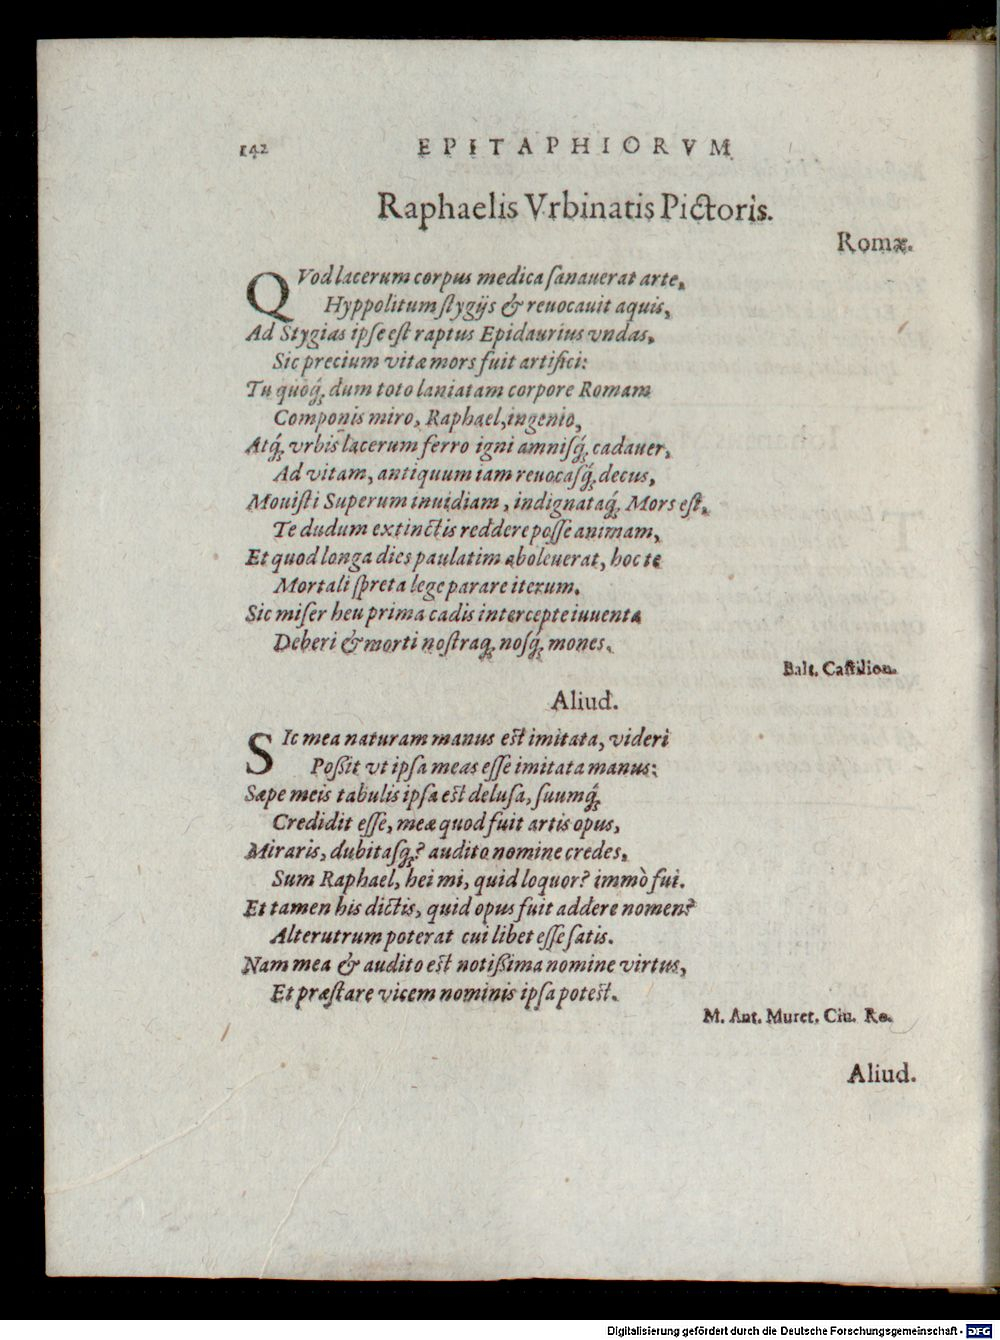 142 EPITAPHIORVM
Raphaelis Vrbinatis Pictoris.
Romæ.
QVod lacerum corpus medica ſanauerat arte,
Hyppolitum ſtygijs & reuocauit aquis,
Ad Stygias ipſe eſt raptus Epidaurius vndas,
Sic precium vitæ mors fuit artifici:
Tu quoq́; dum toto laniatam corpore Romam
Componis miro, Raphael, ingenio,
Atq́; vrbis lacerum ferro igni amniſq́; cadauer,
Ad vitam, antiquum iam reuocaſq́; decus,
Mouiſti Superum inuidiam, indignataq́; Mors eſt,
Te dudum extinctis reddere poſſe animam,
Et quod longa dies paulatim aboleuerat, hoc te
Mortali ſpreta lege parare iterum.
Sic miſer heu prima cadis intercepte iuuenta
Deberi & morti noſtraq; noſq́; mones.
Balt. Caſtilion.
Aliud.
SIc mea naturam manus eſt imitata, videri
Poßit vt ipſa meas eſſe imitata manus:
Sæpe meis tabulis ipſa eſt deluſa, ſuumq́;
Credidit eſſe, meæ quod fuit artis opus,
Miraris, dubitaſq́;? audito nomine credes,
Sum Raphael, hei mi, quid loquor? immò fui.
Et tamen his dictis, quid opus fuit addere nomen?
Alterutrum poterat cui libet eſſe ſatis.
Nam mea & audito eſt notißima nomine virtus,
Et præſtare vicem nominis ipſa poteſt.
M. Ant. Muret. Ciu. Ro.
Aliud.
Digitalisierung gefördert durch die Deutsche Forschungsgemeinschaft - DFG